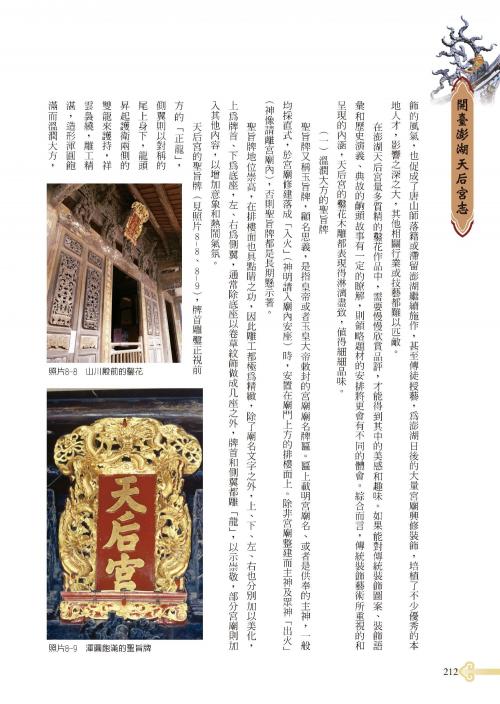 開臺澎湖天后宮志
飾的風氣，也促成了唐山師落籍或滯留澎湖繼續施作，甚至傳徒授藝，為澎湖日後的大量宮廟興修裝飾，培植了不少優秀的本
地人才，影響之深之大，其他相關行業或技藝都難以匹敵。
在澎湖天后宮量多質精的鑿花作品中，需要慢慢欣賞品評，才能得到其中的美感和趣味。如果能對傳統裝飾圖案、裝飾語
彙和歷史演義、典故的齣頭故事有一定的瞭解，則領略題材的安排將更會有不同的體會。綜合而言，傳統裝飾藝術所重視的和
呈現的內涵，天后宮的鑿花木雕都表現得淋漓盡致，值得細細品味。
（一）溫潤大方的聖旨牌
聖旨牌又稱玉旨牌，顧名思義，是指皇帝或者玉皇大帝敕封的宮廟廟名牌匾。匾上載明宮廟名、或者是供奉的主神，一般
均採直式，於宮廟修建落成「入火」（神明請入廟內安座）時，安置在廟門上方的排樓面上。除非宮廟整建而主神及眾神「出火」
（神像請離宮廟內），否則聖旨牌都是長期懸示著。
聖旨牌地位崇高，在排樓面也具點睛之功，因此雕工都極為精緻，除了廟名文字之外，上、下、左、右也分別加以美化，
上為牌首、下為底座，左、右為側翼，通常除底座以卷草紋飾做成几座之外，牌首和側翼都雕「龍」，以示崇敬，部分宮廟則加
入其他內容，以增加意象和熱鬧氣氛。
天后宮的聖旨牌（見照片8-8、8-9），牌首雕鑿正視前
方的「正龍」，
側翼則以對稱的
尾上身下，龍頭
昇起護衛兩側的
雙龍來護持，祥
雲裊繞，雕工精
湛，造形渾圓飽
滿而溫潤大方，
照片8-8 山川殿前的鑿花
天后宮
照片8-9 渾圓飽滿的聖旨牌
212